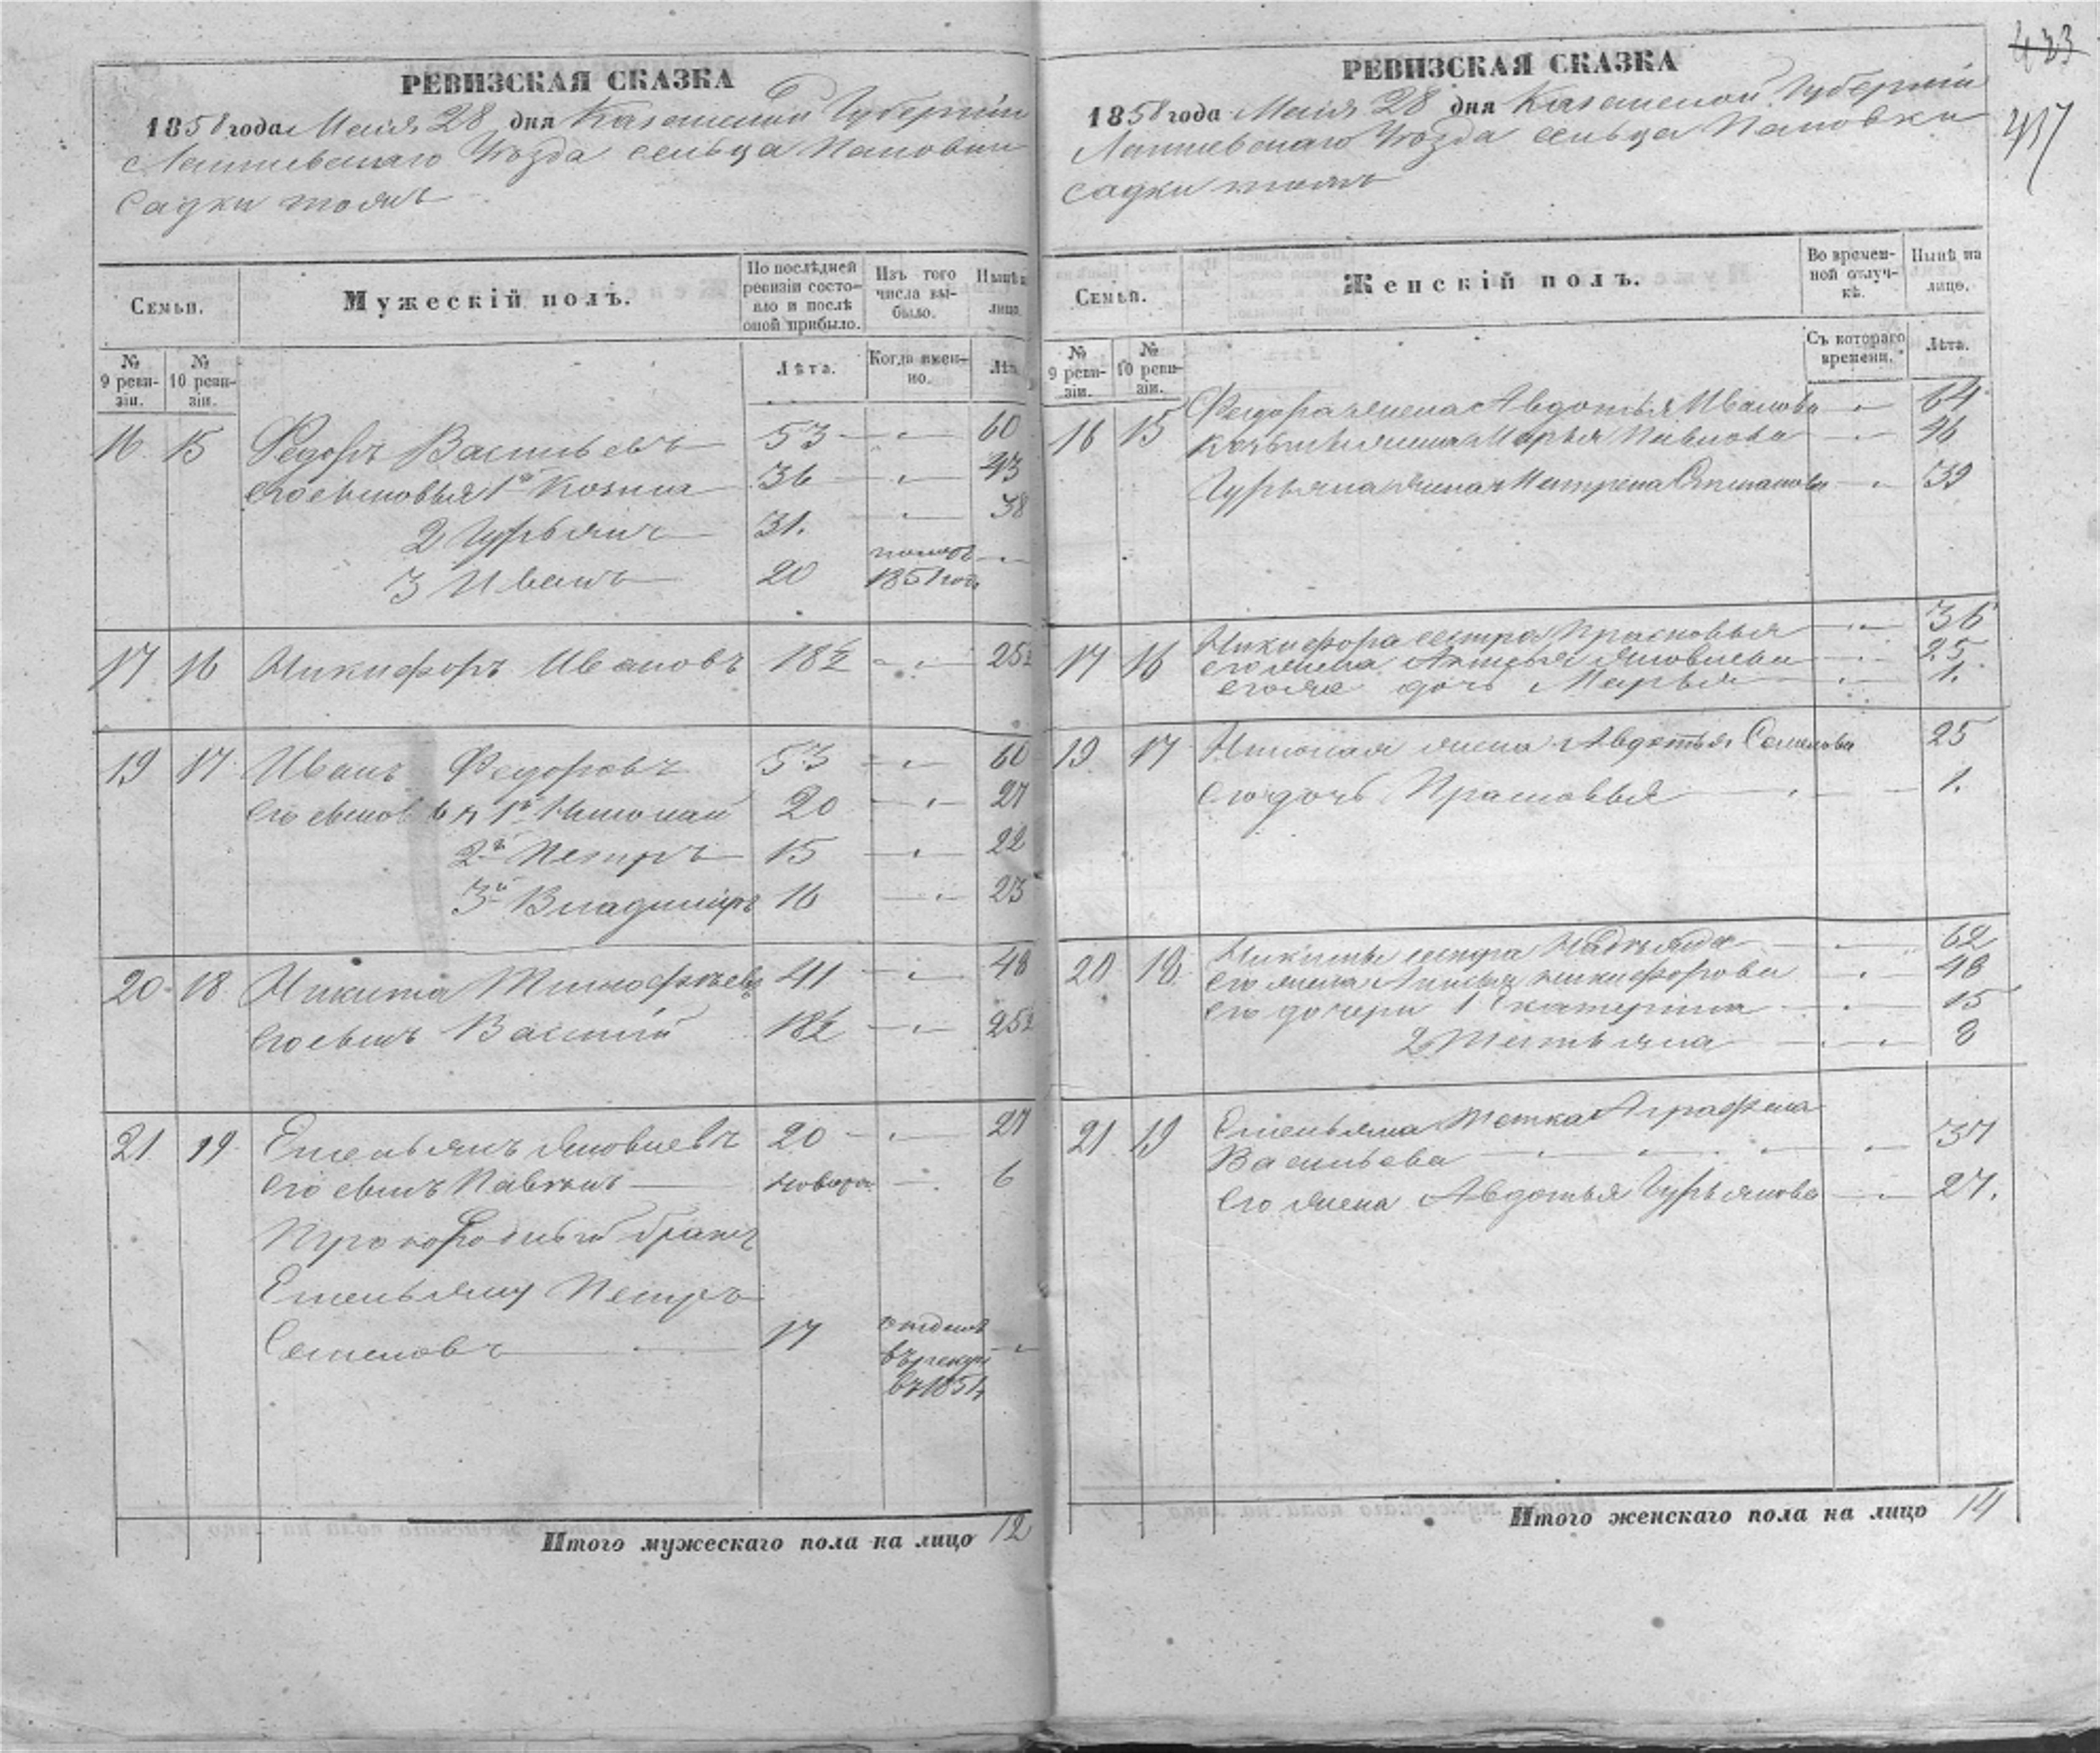 433
417
РЕВИЗСКАЯ СКАЗКА
1858 года Маія 28 дня Казанской Губерніи
Лаишевскаго Уѣзда сельца Пановки
Садки тожъ
Семьи.
Мужескій полъ.
По послѣдней ревизіи состояло и послѣ оной прибыло.
Изъ того числа выбыло.
Нынѣ
лицо.
№ 9 ревизіи.
№ 10 ревизіи.
Лѣта.
Когда именно.
Лѣт
16 15 Федоръ Васильевъ 53 — „ — 60
его сыновья 1й Козьма 36 — „ — 43
2 Гурьянъ 31. — „ — 38
3 Иванъ 20 1851 год. — „
17 16 Никифоръ Ивановъ 18½ — „ — 25½
19 17 Иванъ Федоровъ 53 — „ — 60
его сыновья 1й Николай 20 — „ — 27
2й Петръ 15 — „ — 22
3й Владимиръ 16 — „ — 23
20 18 Никита Тимофѣевъ 41 — „ — 48
его сынъ Василій 18½ — „ — 25½
21 19 Емельянъ Яковлевъ 20 — „ — 27
его сынъ Павелъ — новоро — „ 6
Двоюродный братъ
Емельяну Петръ
Семеновъ — „ — 17 отданъ — „
въ рекру
въ 1854
Итого мужескаго пола на лицо 12
РЕВИЗСКАЯ СКАЗКА
1858 года Маія 28 дня Казанской Губерніи
Лаишевскаго Уѣзда сельца Пановки
садки тожъ
Семьи.
Женскій полъ.
Во временной отлучкѣ.
Нынѣ на лицо.
№ 9 ревизіи.
№ 10 ревизіи.
Съ котораго времени.
Лѣта.
16 15 Федора жена Авдотья Иванова — „ — 64
Козьмы жена Марья Павлова — „ — 46
Гурьяна жена Матрена Степанова — „ 39
17 16 Никифора сестра Прасковья — „ — 36
его жена Яковлева — „ — 25
его же дочь Марья — „ — 1.
19 17 Николая жена Авдотья Семенова 25
его дочь Прасковья — „ — 1.
20 18 Никиты сестра — „ — 62
его жена Никифорова — „ 48
его дочери 1 Екатерина — „ — 15
2 Татьяна — „ — 8
21 19 Емельяна Тетка Аграфена
Васильева — „ — „ — 37
его жена Авдотья Гурьянова — „ 27.
Итого женскаго пола на лицо 14